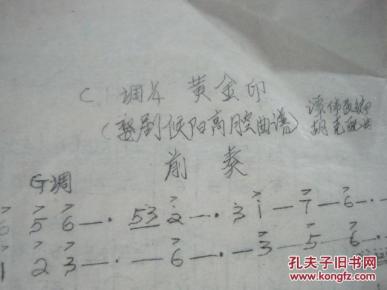 C 调本 黄金印
(婺剧侯阳高腔曲谱)
前 奏
G调
6 5 6 —· 53 2 —· 3 1 — 7 — 6 —·
1 2 3 —· — 6 —· — 3 — 5 — 6 —·
孔夫子旧书网